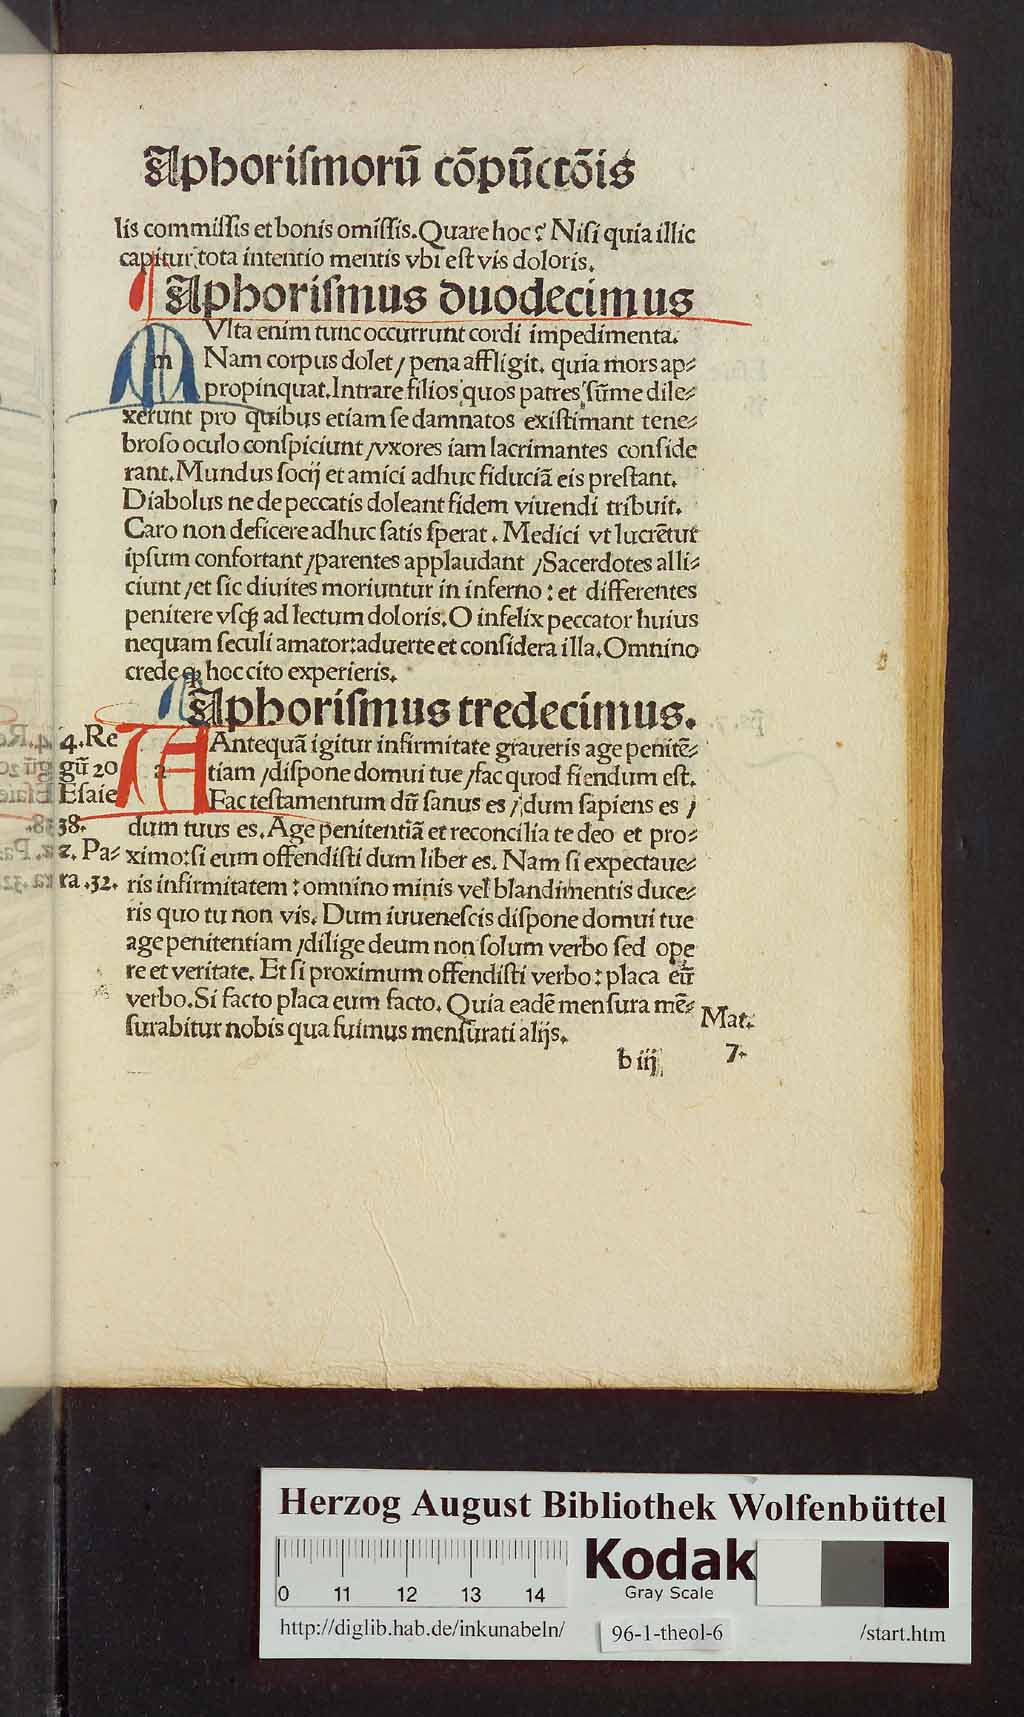 Aphoriſmorū cōpūctōis
lis commiſſis et bonis omiſſis. Quare hoc? Niſi quia illic
capitur tota intentio mentis vbi eſt vis doloris.
Aphoriſmus duodecimus
m Vlta enim tunc occurrunt cordi impedimenta.
Nam corpus dolet / pena affligit. quia mors ap⸗
propinquat. Intrare filios quos patres ſūme dile⸗
xerunt pro quibus etiam ſe damnatos exiſtimant tene⸗
broſo oculo conſpiciunt / vxores iam lacrimantes conſide
rant. Mundus ſocij et amici adhuc fiduciā eis preſtant.
Diabolus ne de peccatis doleant fidem viuendi tribuit.
Caro non deficere adhuc ſatis ſperat. Medici vt lucrētur
ipſum confortant / parentes applaudant / Sacerdotes alli⸗
ciunt / et ſic diuites moriuntur in inferno: et differentes
penitere vſqꝫ ad lectum doloris. O infelix peccator huius
nequam ſeculi amator: aduerte et conſidera illa. Omnino
crede ꝙ hoc cito experieris.
Aphoriſmus tredecimus.
Antequā igitur infirmitate graueris age penitē⸗
tiam / diſpone domui tue / fac quod fiendum eſt.
Fac teſtamentum dū ſanus es / dum ſapiens es /
dum tuus es. Age penitentiā et reconcilia te deo et pro⸗
ximo: ſi eum offendiſti dum liber es. Nam ſi expectaue⸗
ris infirmitatem: omnino minis vel blandimentis duce⸗
ris quo tu non vis. Dum iuueneſcis diſpone domui tue
age penitentiam / dilige deum non ſolum verbo ſed ope
re et veritate. Et ſi proximum offendiſti verbo: placa eū
verbo. Si facto placa eum facto. Quia eadē menſura mē⸗
ſurabitur nobis qua fuimus menſurati alijs.
4. Re
gū 20
Eſaie
38.
2. Pa⸗
ra .32.
Mat.
7.
b iij
Herzog August Bibliothek Wolfenbüttel
0 11 12 13 14
Kodak
Gray Scale
http://diglib.hab.de/inkunabeln/ 96-1-theol-6 /start.htm